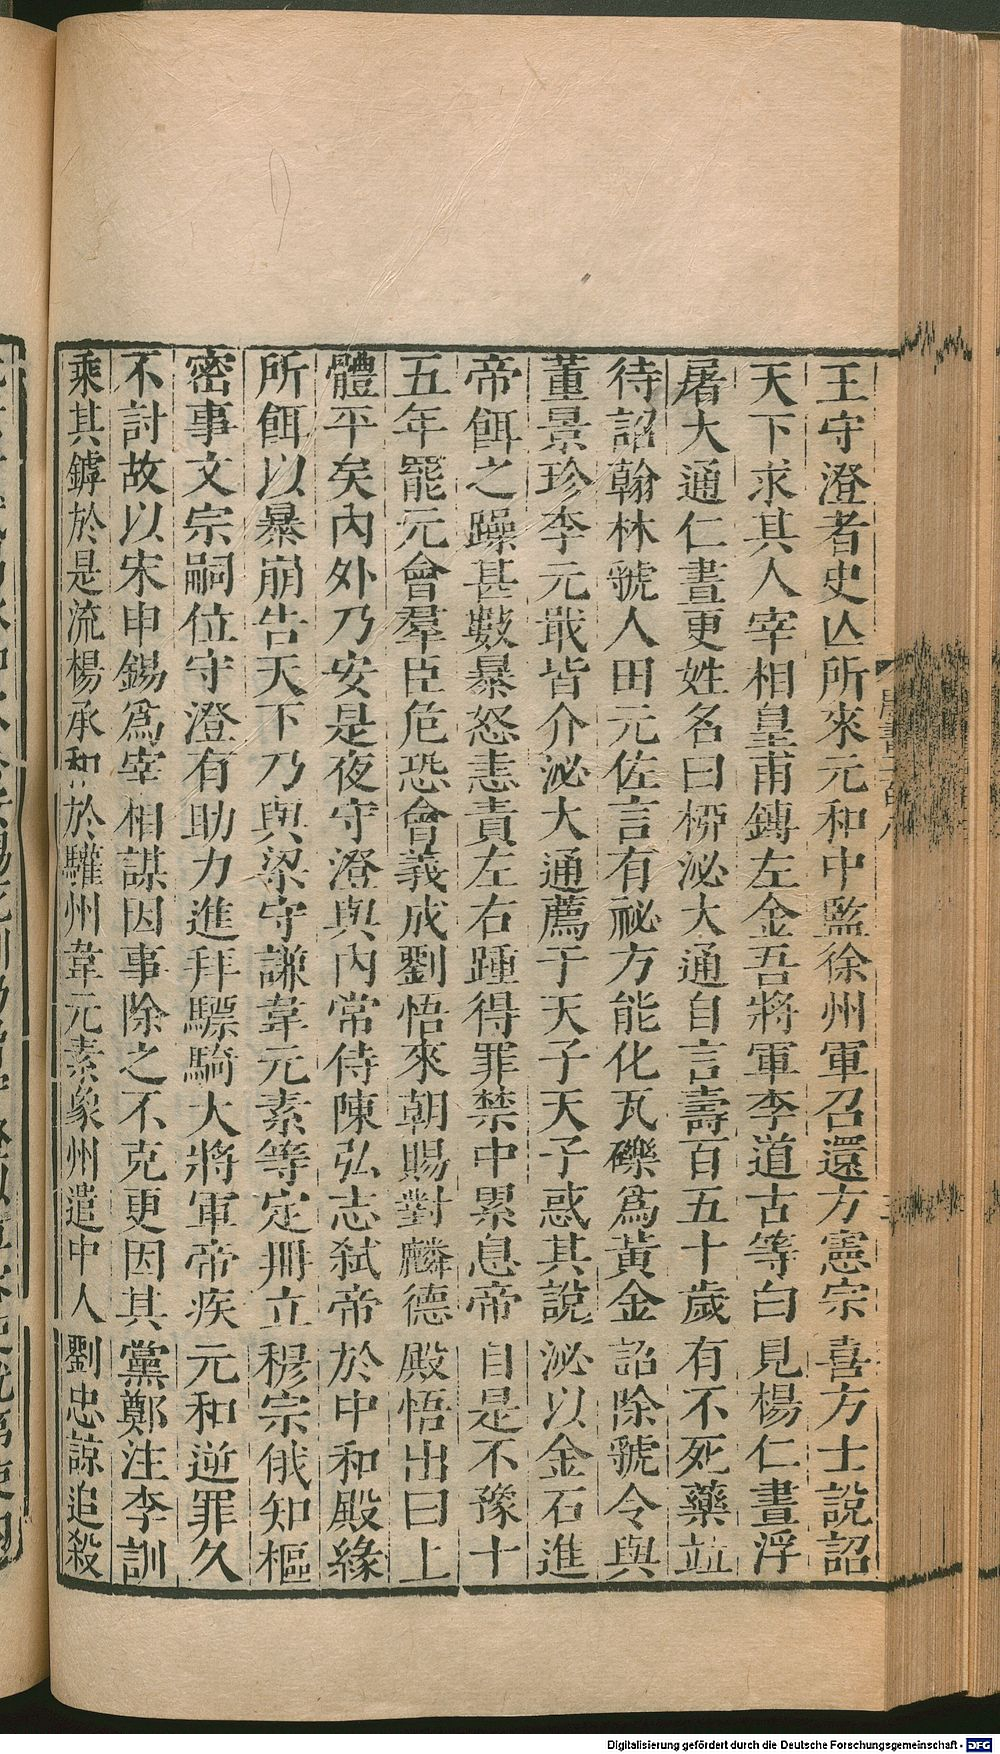 王守澄者史亾所來元和中監徐州軍召還方憲宗喜方士說詔
天下求其人宰相皇甫鎛左金吾將軍李道古等白見楊仁晝浮
屠大通仁晝更姓名曰栁泌大通自言壽百五十歲有不死藥竝
待詔翰林虢人田元佐言有祕方能化瓦礫爲黃金詔除虢令與
董景珍李元戢皆介泌大通薦于天子天子惑其說泌以金石進
帝餌之躁甚數暴怒恚責左右踵得罪禁中累息帝自是不豫十
五年罷元會羣臣危恐會義成劉悟來朝賜對麟德殿悟出曰上
體平矣內外乃安是夜守澄與內常侍陳弘志弑帝於中和殿緣
所餌以暴崩告天下乃與梁守謙韋元素等定冊立穆宗俄知樞
密事文宗嗣位守澄有助力進拜驃騎大將軍帝疾元和逆罪久
不討故以宋申錫爲宰相謀因事除之不克更因其黨鄭注李訓
乘其鏬於是流楊承和於驩州韋元素象州遣中人劉忠諒追殺
Digitalisierung gefördert durch die Deutsche Forschungsgemeinschaft - DFG